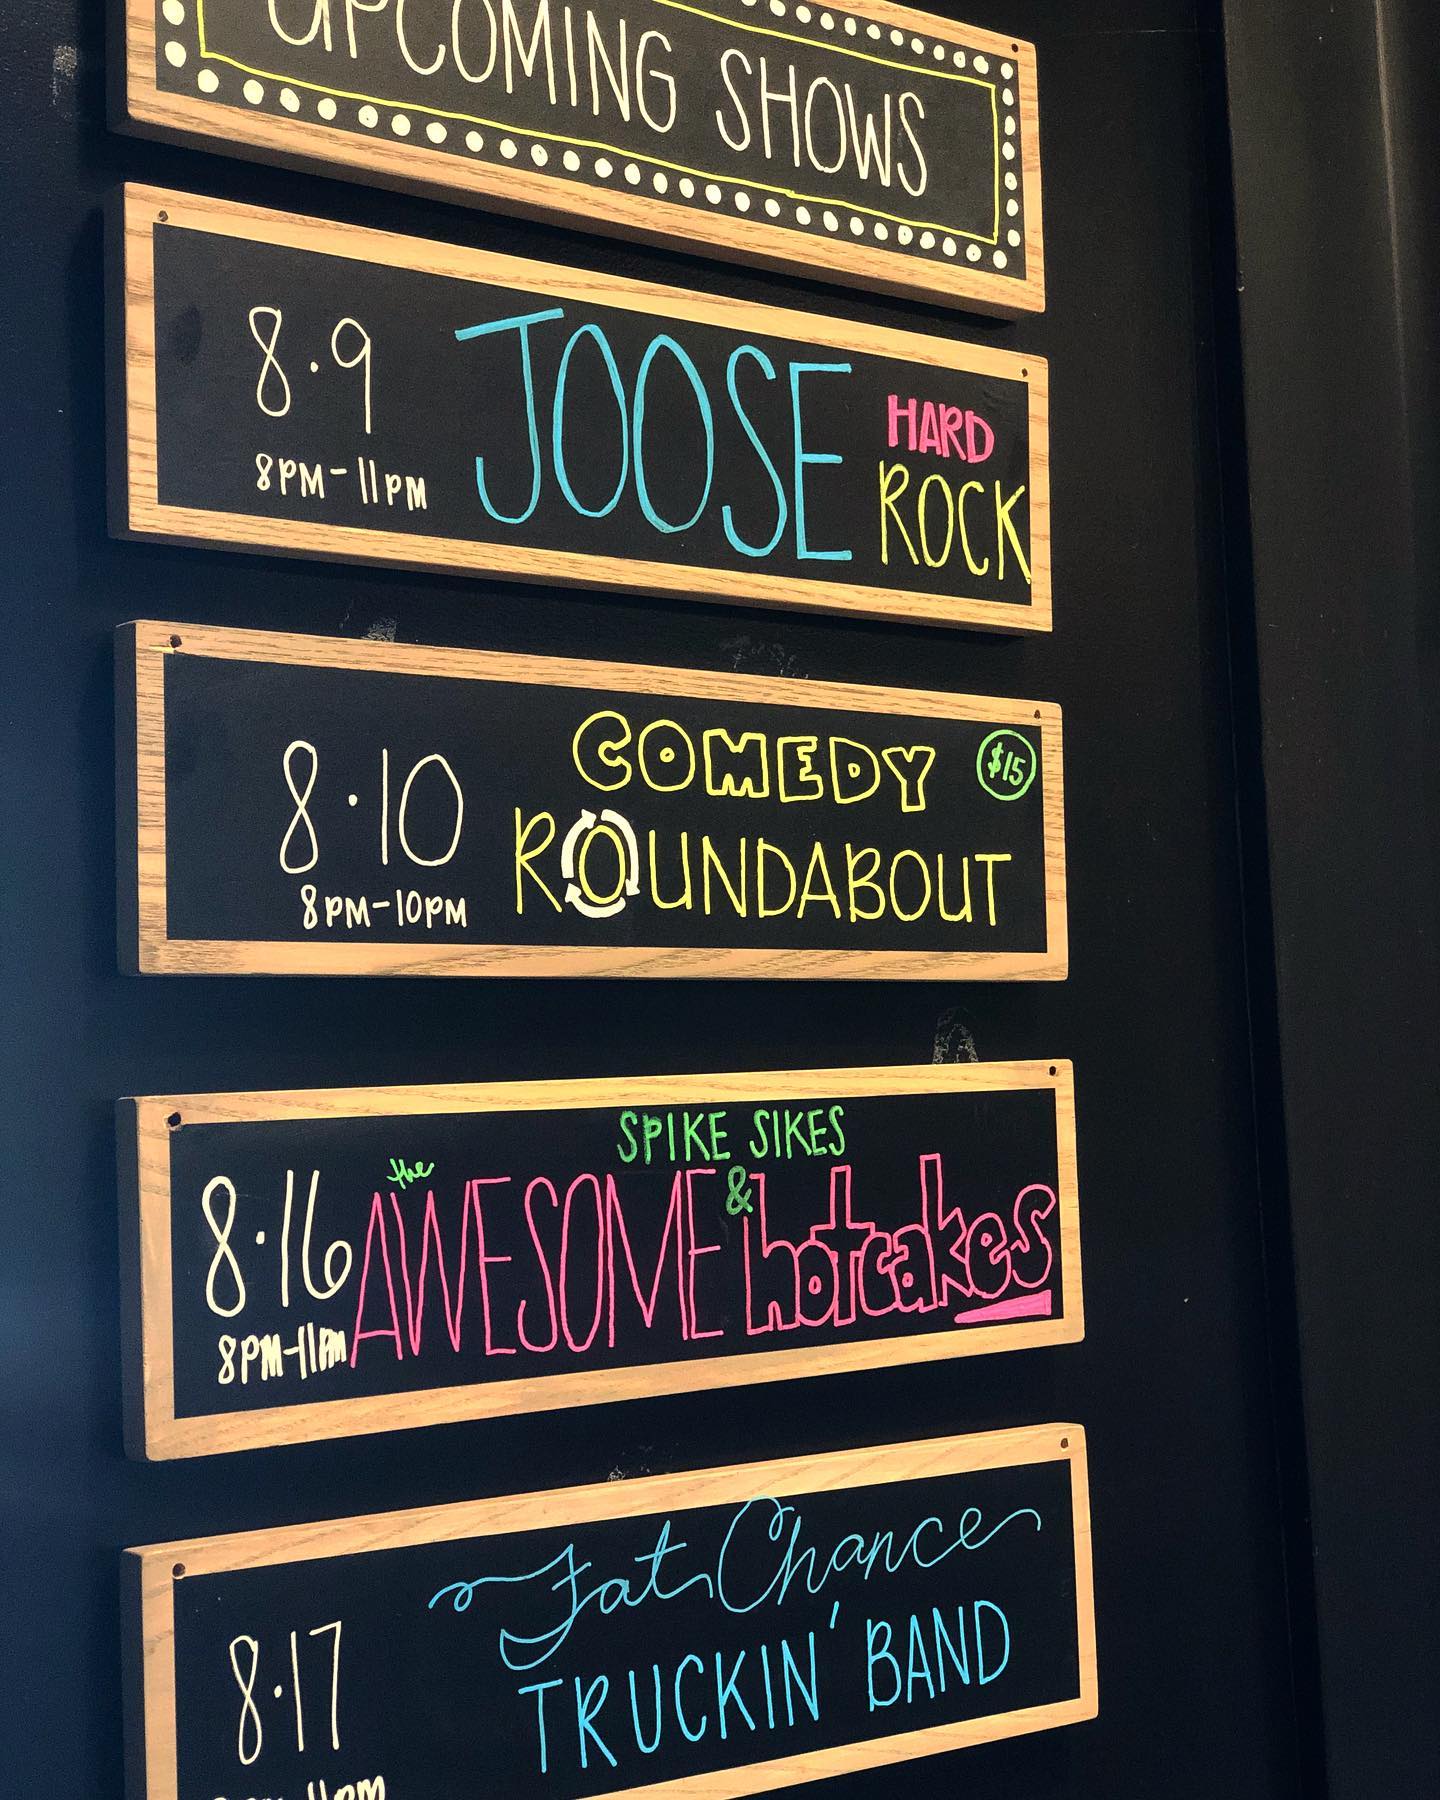 UPCOMING SHOWS
8.9
8PM-11PM
JOOSE
HARD
ROCK
8.10
8PM-10PM
COMEDY
ROUNDABOUT
$15
8.16
8PM-11PM
SPIKE SIKES
& the
AWESOME hotcakes
8.17
11PM
Fat Chance
TRUCKIN' BAND